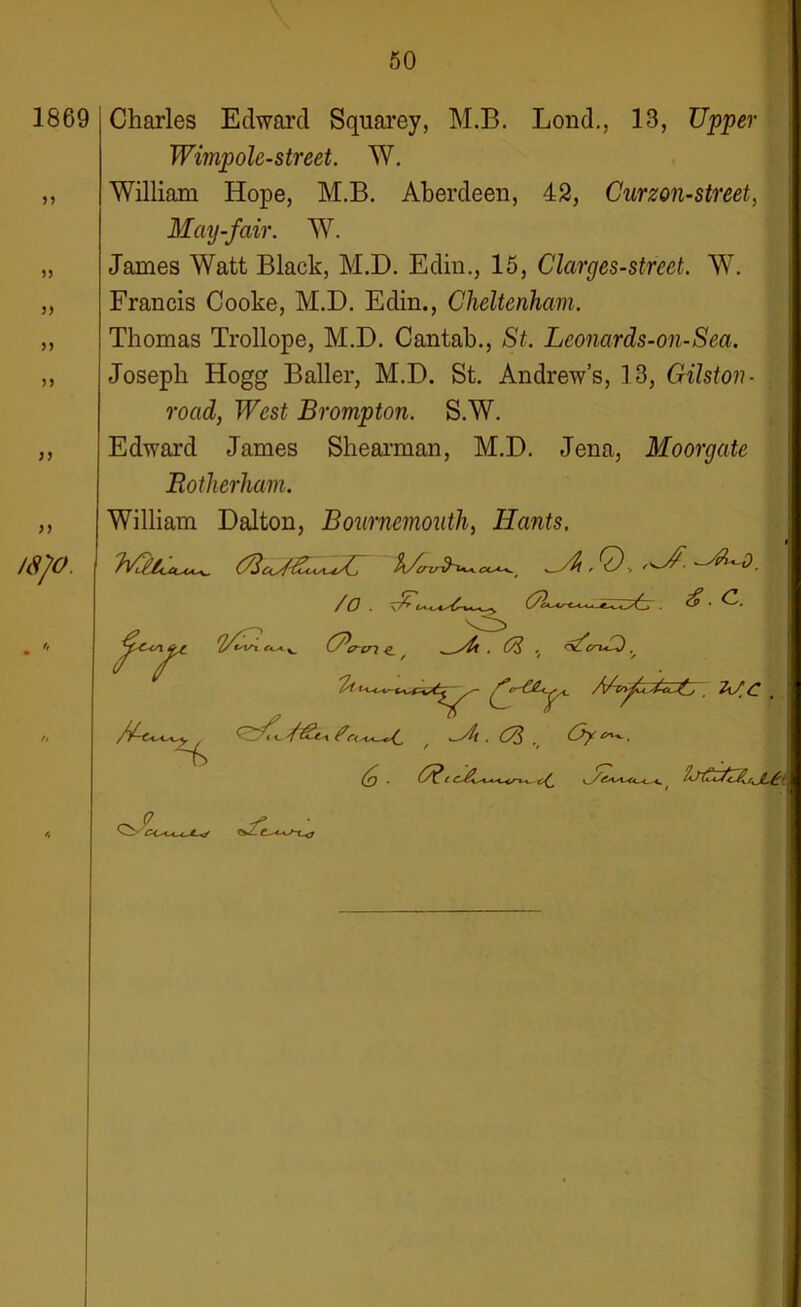 50
1869 Charles Edward Squarey, M.B. Lond., 13, Upper
Wimpole-street. W.
„ William Hope, M.B. Aberdeen, 42, Curzon-street,
May-fair. W.
„ James Watt Black, M.D. Edin., 15, Clarges-street. W.
„ Francis Cooke, M.D. Edin., Cheltenham.
„ Thomas Trollope, M.D. Cantab., St. Leonards-on-Sea.
„ Joseph Hogg Baller, M.D. St. Andrew's, 13, Gilston-
road, West Brompton. S.W.
„ Edward James Shearman, M.D. Jena, Moorgate
Rotherham.
„ William Dalton, Bournemouth, Hants.
1870. William Woodman, M.D.,
10. E.C.
„ George M.B., Lond.,
University Coll. Hospital. W.C.
„ Henry M.B.,
6. Richmond
„